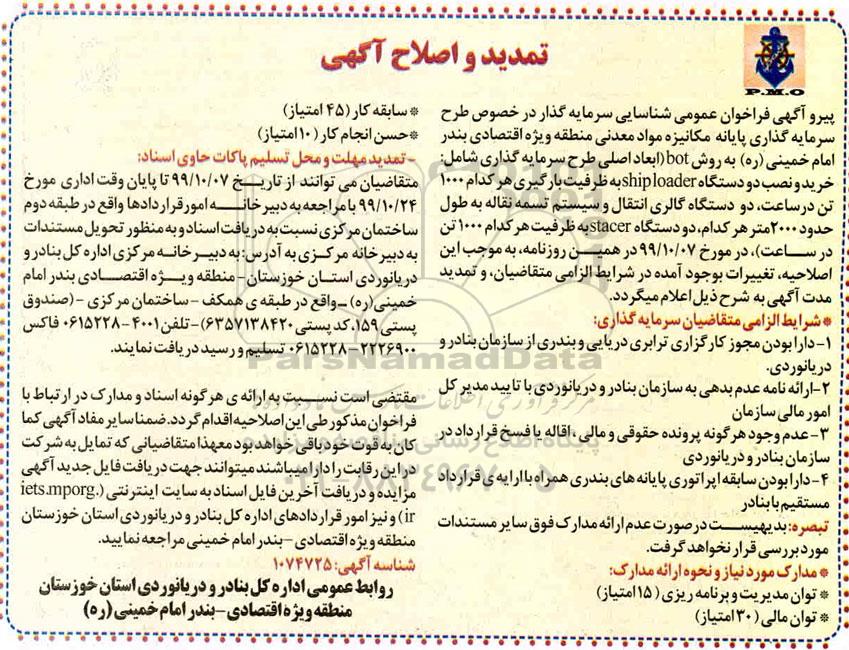 تمدید و اصلاح آگهی
P.M.O
پیرو آگهی فراخوان عمومی شناسایی سرمایه گذار در خصوص طرح
سرمایه گذاری پایانه مکانیزه مواد معدنی منطقه ویژه اقتصادی بندر
امام خمینی (ره) به روش bot (ابعاد اصلی طرح سرمایه گذاری شامل:
خرید و نصب دو دستگاه ship loader به ظرفیت بارگیری هر کدام ۱۰۰۰
تن در ساعت، دو دستگاه گالری انتقال و سیستم تسمه نقاله به طول
حدود ۲۰۰۰ متر هر کدام، دو دستگاه stacer به ظرفیت هر کدام ۱۰۰۰ تن
در ساعت)، در مورخ ۹۹/۱۰/۰۷ در همین روزنامه، به موجب این
اصلاحیه، تغییرات بوجود آمده در شرایط الزامی متقاضیان، و تمدید
مدت آگهی به شرح ذیل اعلام میگردد.
* شرایط الزامی متقاضیان سرمایه گذاری:
۱- دارا بودن مجوز کارگزاری ترابری دریایی و بندری از سازمان بنادر و
دریانوردی.
۲- ارائه نامه عدم بدهی به سازمان بنادر و دریانوردی با تایید مدیر کل
امور مالی سازمان
۳- عدم وجود هر گونه پرونده حقوقی و مالی، اقاله یا فسخ قرارداد در
سازمان بنادر و دریانوردی
۴- دارا بودن سابقه اپراتوری پایانه های بندری همراه با ارایه ی قرارداد
مستقیم با بنادر
تبصره: بدیهیست در صورت عدم ارائه مدارک فوق سایر مستندات
مورد بررسی قرار نخواهد گرفت.
* مدارک مورد نیاز و نحوه ارائه مدارک:
* توان مدیریت و برنامه ریزی (۱۵ امتیاز)
* توان مالی (۳۰ امتیاز)
* سابقه کار (۴۵ امتیاز)
* حسن انجام کار (۱۰ امتیاز)
- تمدید مهلت و محل تسلیم پاکات حاوی اسناد:
متقاضیان می توانند از تاریخ ۹۹/۱۰/۰۷ تا پایان وقت اداری مورخ
۹۹/۱۰/۲۴ با مراجعه به دبیرخانه امور قراردادها واقع در طبقه دوم
ساختمان مرکزی نسبت به دریافت اسناد و به منظور تحویل مستندات
به دبیرخانه مرکزی به آدرس: به دبیرخانه مرکزی اداره کل بنادر و
دریانوردی استان خوزستان - منطقه ویژه اقتصادی بندر امام
خمینی (ره) - واقع در طبقه ی همکف - ساختمان مرکزی - (صندوق
پستی ۱۵۹، کد پستی ۶۳۵۷۱۳۸۴۲۰) - تلفن ۴۰۰۱-۰۶۱۵۲۲۸ فاکس
۰۶۱۵۲۲۸-۲۲۲۶۹۰۰ تسلیم و رسید دریافت نمایند.
مقتضی است نسبت به ارائه ی هرگونه اسناد و مدارک در ارتباط با
فراخوان مذکور طی این اصلاحیه اقدام گردد. ضمنا سایر مفاد آگهی کما
کان به قوت خود باقی خواهد بود معهذا متقاضیانی که تمایل به شرکت
در این رقابت را دارا میباشند میتوانند جهت دریافت فایل جدید آگهی
مزایده و دریافت آخرین فایل اسناد به سایت اینترنتی (iets.mporg.
ir) و نیز امور قراردادهای اداره کل بنادر و دریانوردی استان خوزستان
منطقه ویژه اقتصادی - بندر امام خمینی مراجعه نمایید.
شناسه آگهی: ۱۰۷۴۷۲۵
روابط عمومی اداره کل بنادر و دریانوردی استان خوزستان
منطقه ویژه اقتصادی - بندر امام خمینی (ره)
ParsNamadData
۰۲۱-۸۸۳۴۹۶۷۰-۵